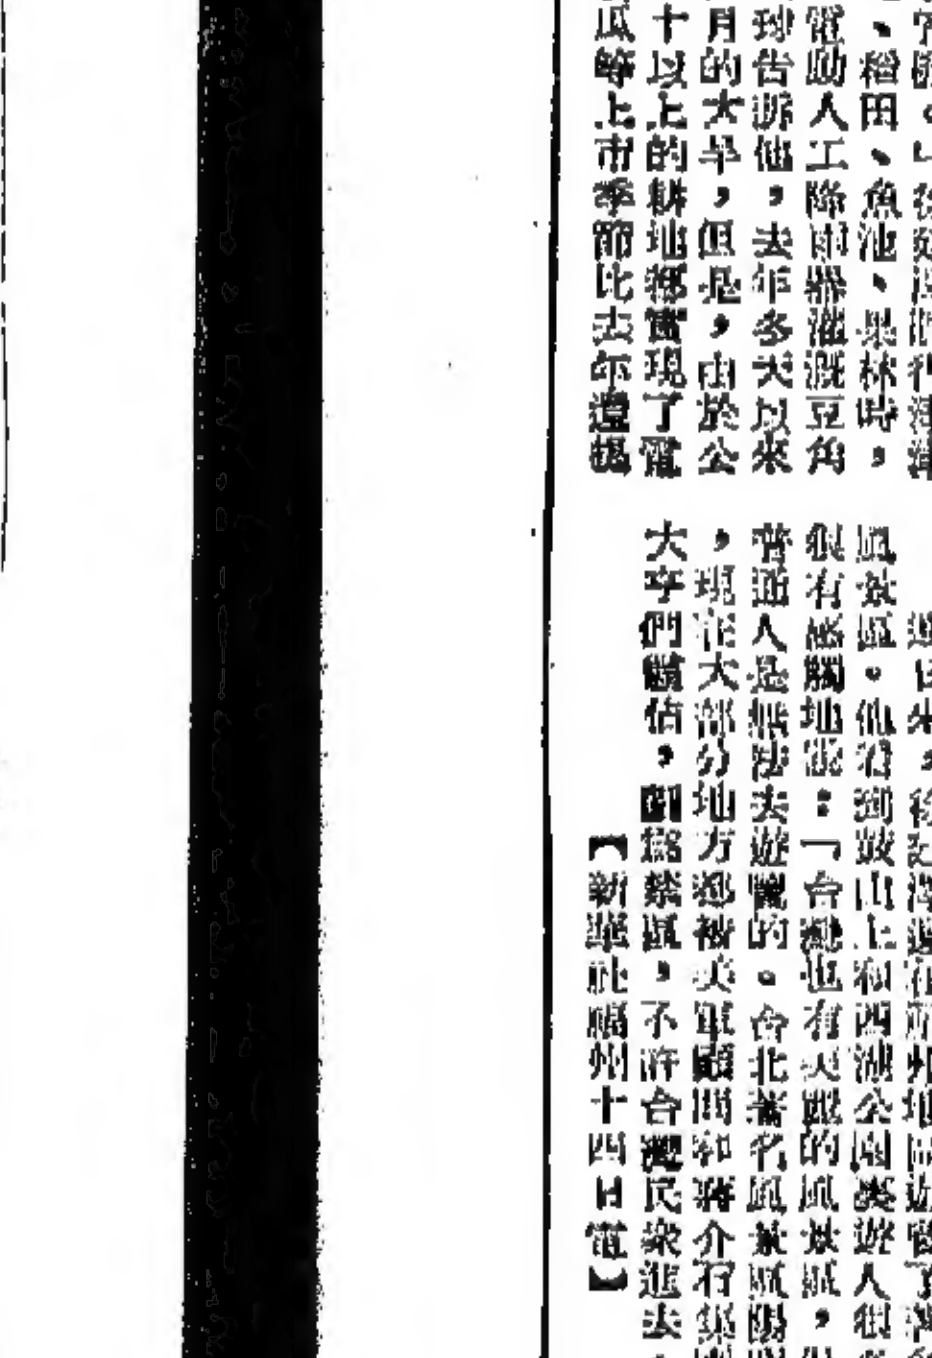 、稻田、魚池、果林時，
電動人工降雨器灌溉豆角
告訴他，去年冬天以來
月的大旱，但是，由於公
十以上的耕地都實現了電
瓜等上市季節比去年還提
風景區。他看到鼓山上和西湖公園裏遊人很
很有感觸地說：「台灣也有美麗的風景區，
普通人是無法去遊覽的。台北著名風景區陽
，現在大部分地方都被美軍顧問和蔣介石集
大亨們霸佔，劃爲禁區，不許台灣民衆進去
【新華社福州十四日電】